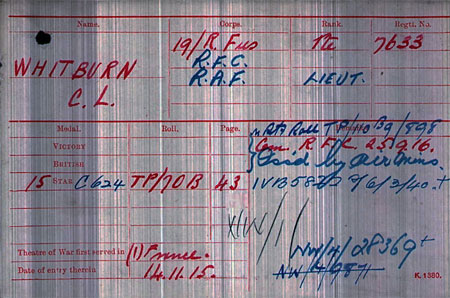 Name. Corps. Rank. Regtl. No.
19/R. Fus Pte 7633
WHITBURN R.F.C.
R.A.F. LIEUT.
C. L.
Medal. Roll. Page.
Roll TP/10B9/898
VICTORY Com. R.F.C. 25.9.16.
BRITISH Issd by Air Mins.
15 STAR C624 TP/70B 43 6/3/40
Theatre of War first served in (1) France. NW/4/28369
Date of entry therein 14.11.15.
K. 1380.